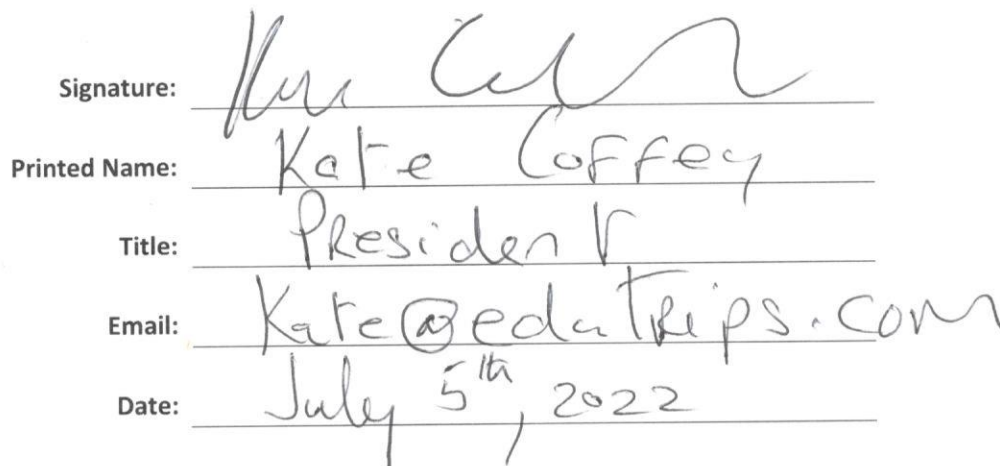 Signature:
Printed Name: Kate Coffey
Title: President
Email: Kate@edutrips.com
Date: July 5th, 2022